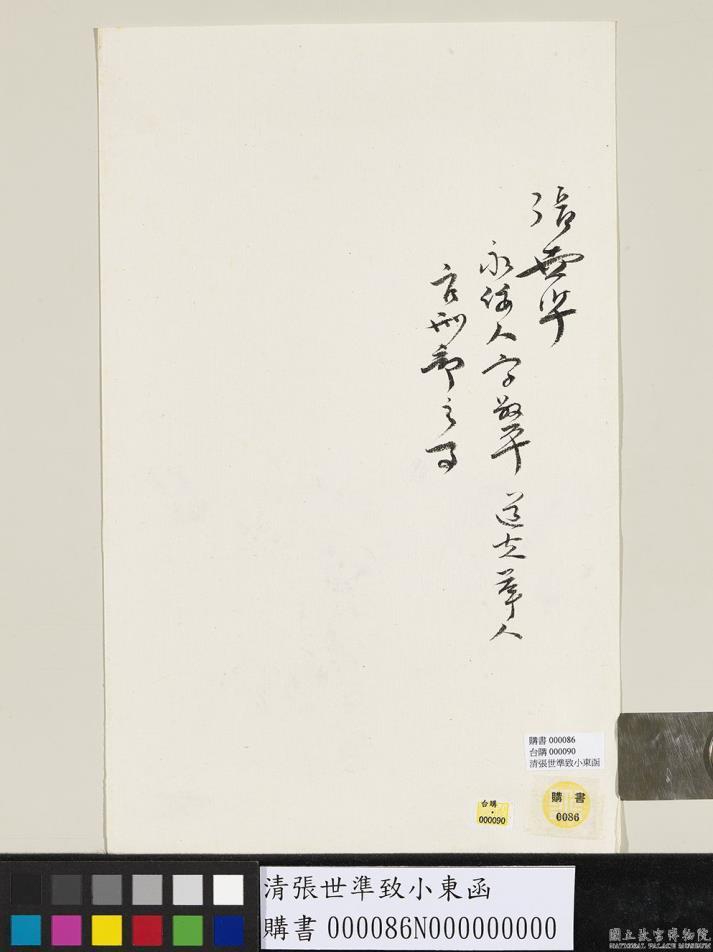 張世準
永綏人字叔平 道光舉人
官刑部主事
購書 000086
台購 000090
清張世準致小東函
台購
000090
購書
0086
清張世準致小東函
購書 000086N000000000
國立故宮博物院
NATIONAL PALACE MUSEUM